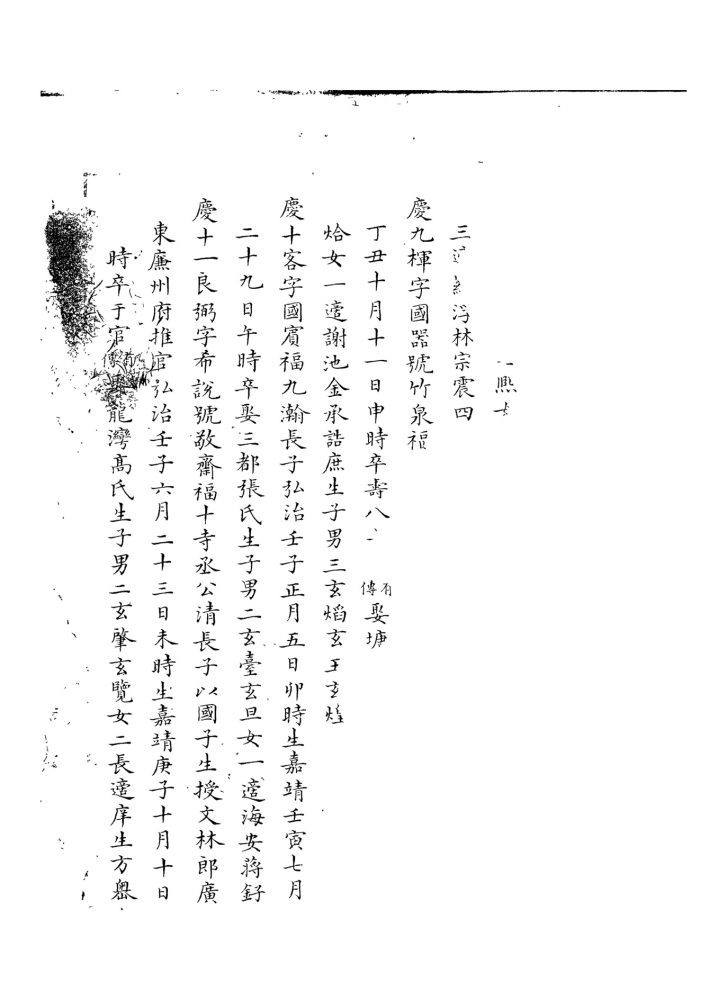 三 浮林宗震四
慶九楎字國器號竹泉福
丁丑十月十一日申時卒壽八 有傳娶塘
烚女一適謝池金承誥庶生子男三玄熖玄玉玄煃
慶十客字國賓福九瀚長子弘治壬子正月五日卯時生嘉靖壬寅七月
二十九日午時卒娶三都張氏生子男二玄臺玄旦女一適海安蔣釨
慶十一良弼字希說號敬齋福十寺丞公清長子以國子生授文林郎廣
東廉州府推官弘治壬子六月二十三日未時生嘉靖庚子十月十日
時卒于官有傳娶龍灣高氏生子男二玄肇玄覽女二長適庠生方嶴